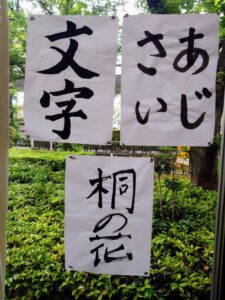 文字
あじ
さい
桐の花